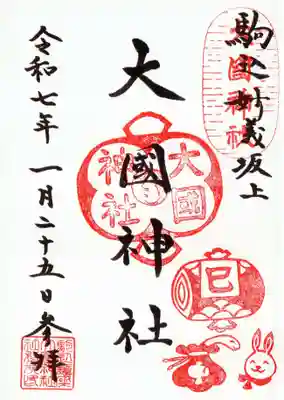 駒込妙義坂上
大國神社
大國神社
巳
令和七年 一月二十五日 参拝